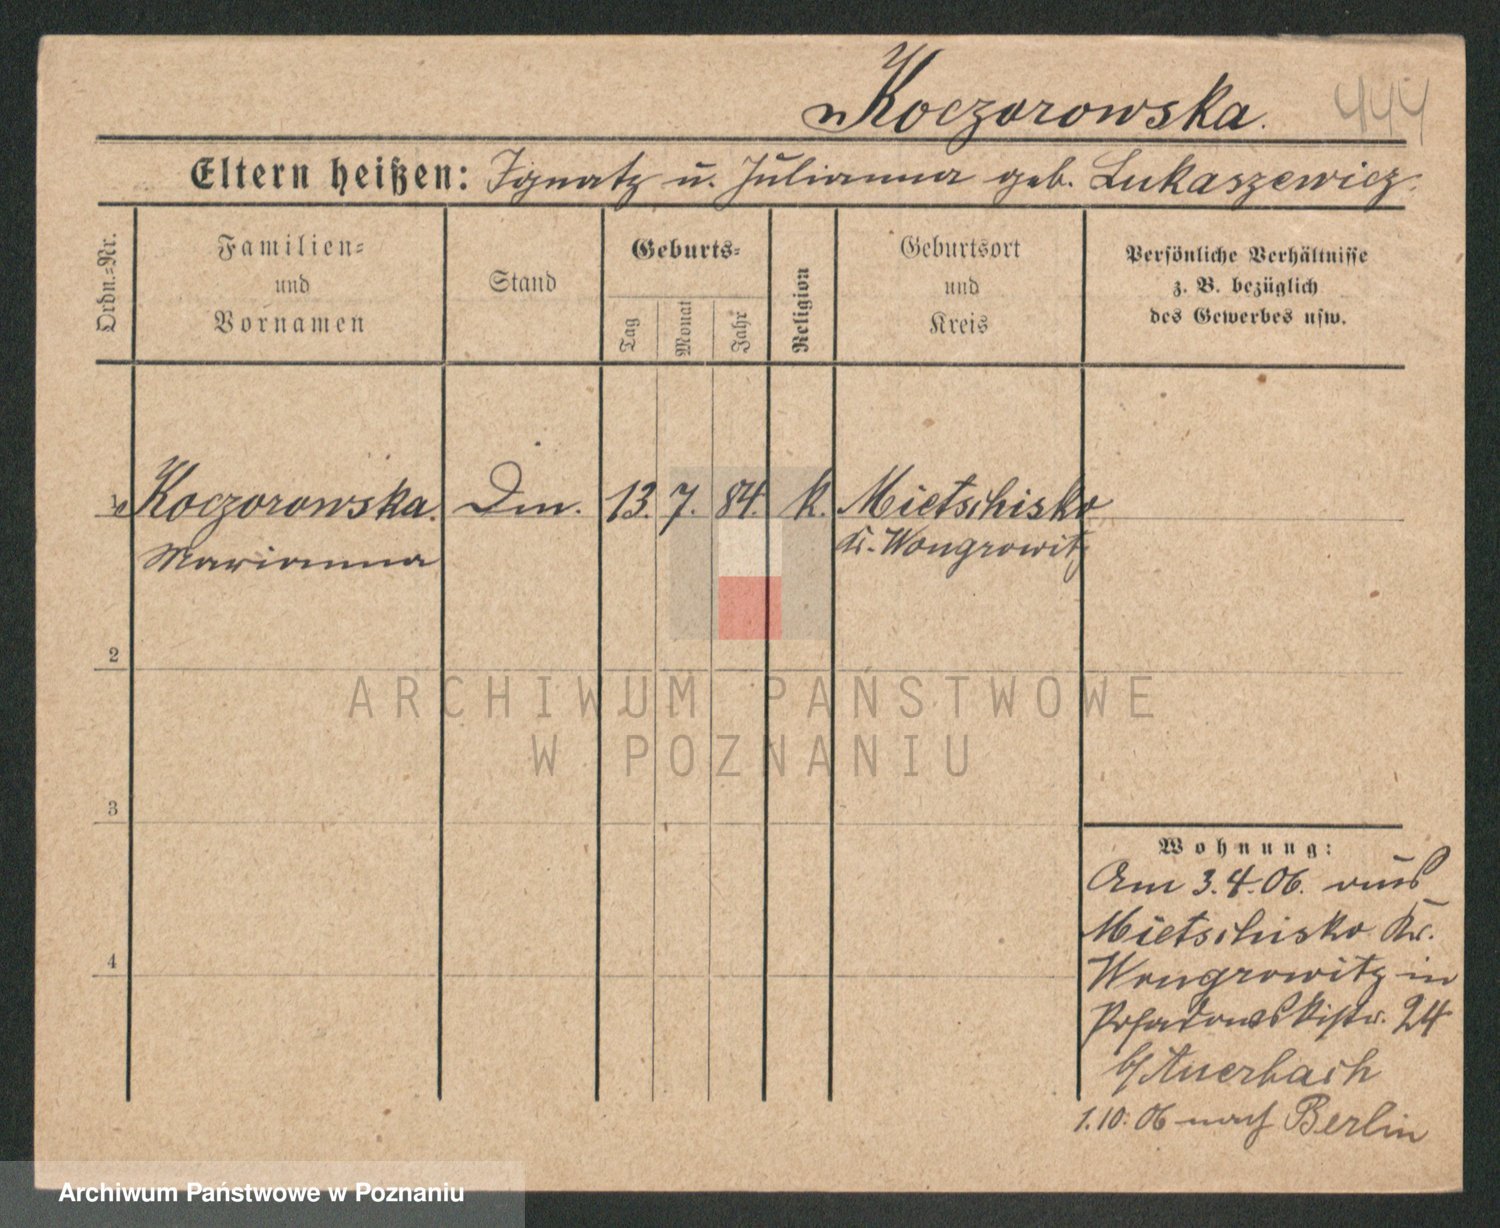 v Koczorowska. 444
Eltern heißen: Ignatz u. Julianna geb. Lukaszewicz.
Ordn.=Nr.
Familien=
und
Vornamen
Stand
Geburts=
Tag
Monat
Jahr
Religion
Geburtsort
und
Kreis
Persönliche Verhältnisse
z. B. bezüglich
des Gewerbes usw.
1 v Koczorowska. Dm. 13. 7. 84. k. Mietschisko
Marianna Kr. Wongrowitz
2
3
4
Wohnung:
Am 3.4.06. aus
Mietschisko Kr.
Wongrowitz in
Posadowskistr. 24
b/ Auerbach
1.10.06 nach Berlin
ARCHIWUM PAŃSTWOWE
W POZNANIU
Archiwum Państwowe w Poznaniu